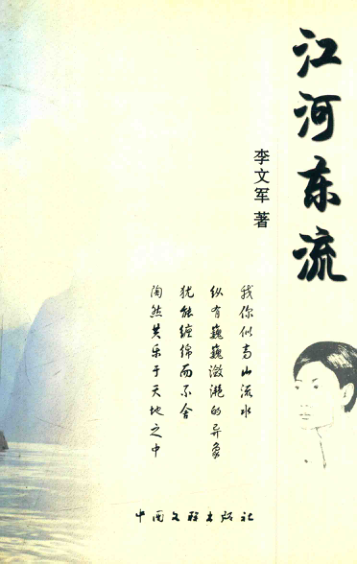 江河东流
李文军 著
我你似高山流水
纵有巍巍潋滟的异象
犹能缠绵而不舍
陶然共乐于天地之中
中国文联出版社